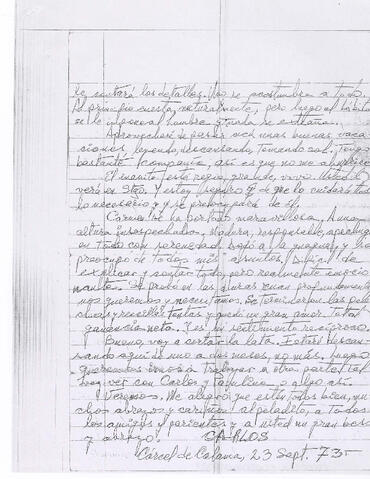 le contará los detalles. Uno se acostumbra a todo.
Al principio cuesta, naturalmente, pero luego el hábito
se le impone al hombre y nada se extraña.
Aprovecharé de pasar acá unas buenas vaca
ciones, leyendo, descansando, tomando sol. Tengo
bastante compañía, así es que no me aburriré.
El nanito está regio, grande, vivo. Usted lo
verá en Stgo. Y estoy seguro de que lo cuidará todo
lo necesario y se preocupará de él.
se ha portado maravillosa. A una
altura insospechada. Madura, responsable, apechuga
en todo con serenidad, bajó a la mayor, y ha
preocupado de todos mis asuntos. Difícil de
explicar y contar todo, pero realmente emocio
nante. Se probó en las duras cuan profundamente
nos queremos y necesitamos. Se terminaron las pele
chas y rencillas tontas y quedó un gran amor. Total
ganancia neta. Y es un sentimiento recíproco.
Bueno, voy a cortar la lata. Estaré descan
sando aquí de uno a dos meses, no más, luego
queremos irnos a trabajar a otra parte, tal
vez ver con Carlos y Paulina o algo así.
Veremos. Me alegro que estén todos bien, mu
chos abrazos y cariños al peladito, a todos
los amigos y parientes y a usted un gran beso
y abrazo. CARLOS
Cárcel de Calama, 23 Sept. 73.-